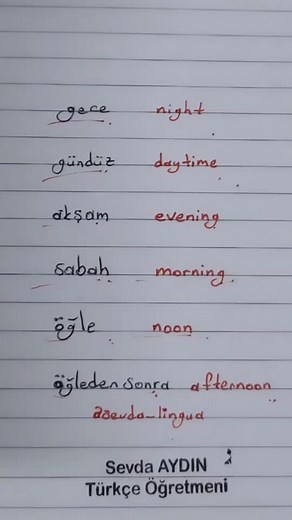 gece night
gündüz daytime
akşam evening
sabah morning
öğle noon
öğleden sonra afternoon
Sevda AYDIN
Türkçe Öğretmeni